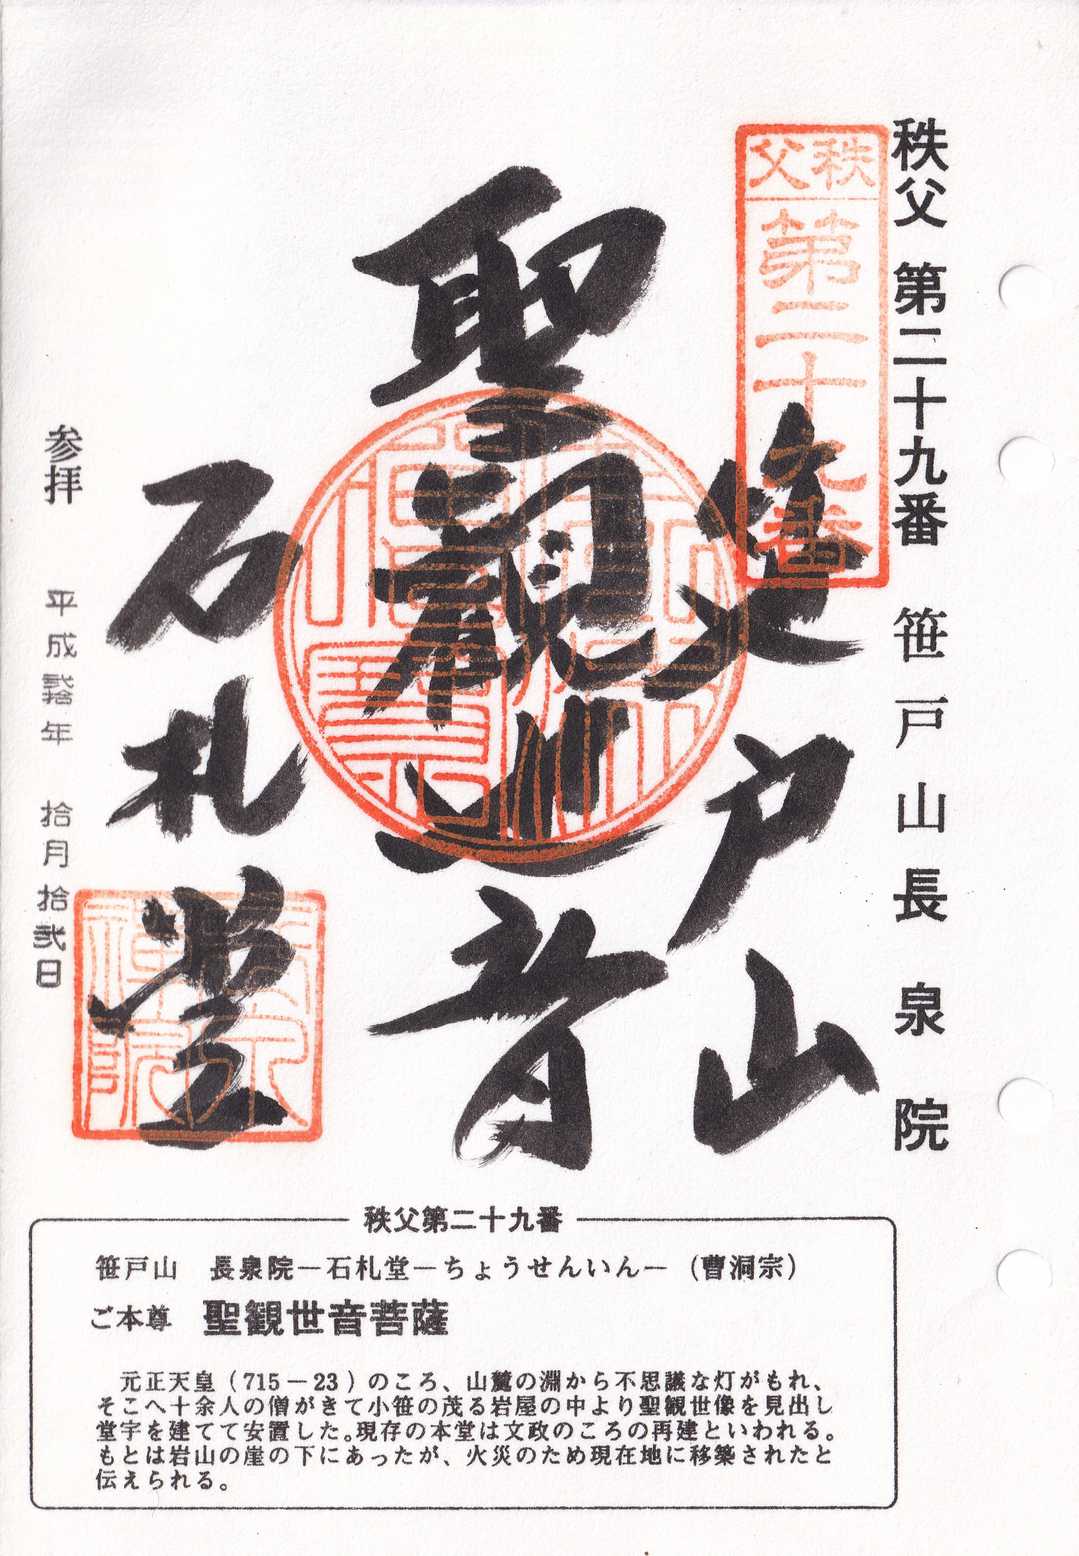 秩父 第二十九番 笹戸山長泉院
秩父
第二十九番
笹戸山
聖観世音
石札堂
参拝 平成弐拾年 拾月拾弐日
禅院
秩父第二十九番
笹戸山 長泉院－石札堂－ちょうせんいん－（曹洞宗）
ご本尊 聖観世音菩薩
元正天皇（715－23）のころ、山麓の淵から不思議な灯がもれ、
そこへ十余人の僧がきて小笹の茂る岩屋の中より聖観世像を見出し
堂宇を建てて安置した。現存の本堂は文政のころの再建といわれる。
もとは岩山の崖の下にあったが、火災のため現在地に移築されたと
伝えられる。